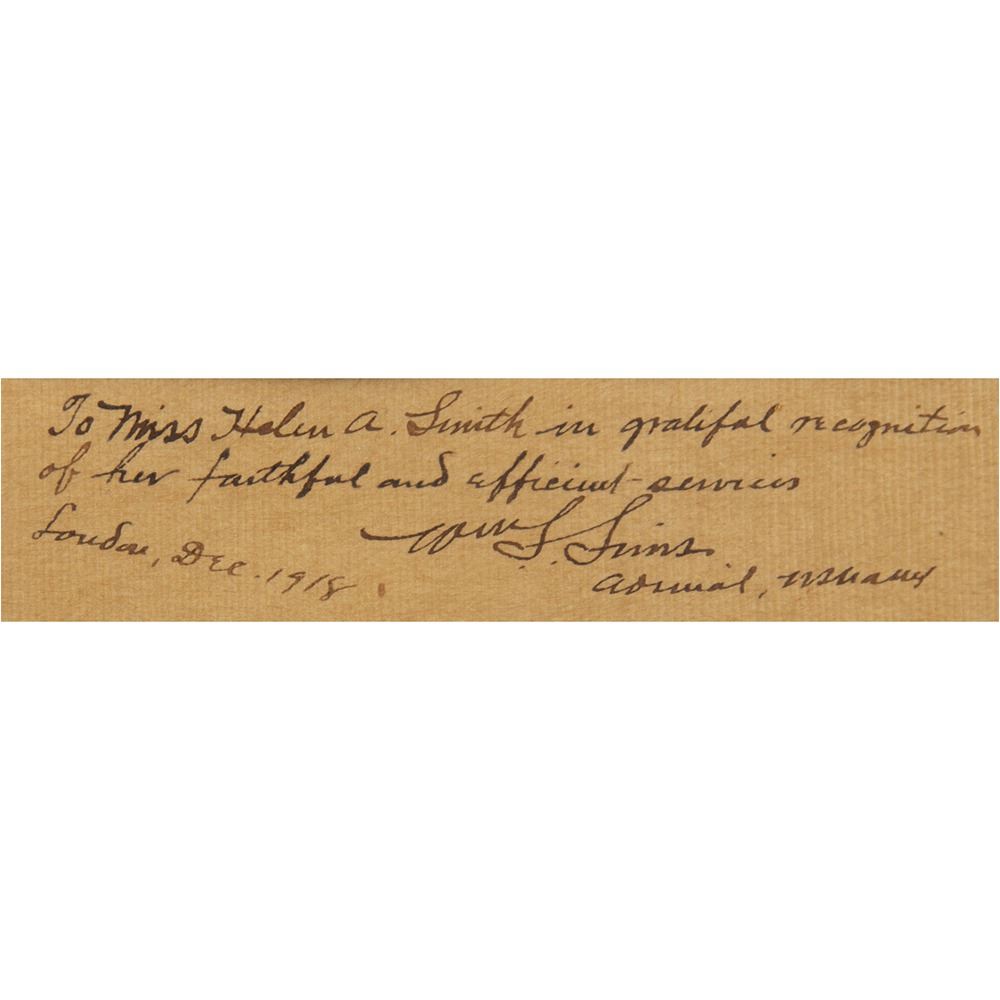 To Miss Helen A. Smith in grateful recognition
of her faithful and efficient services
Wm. S. Sims
London, Dec. 1918
Admiral, U.S. Navy